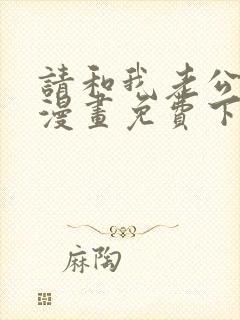 請和我老公
漫畫免費下
麻陶